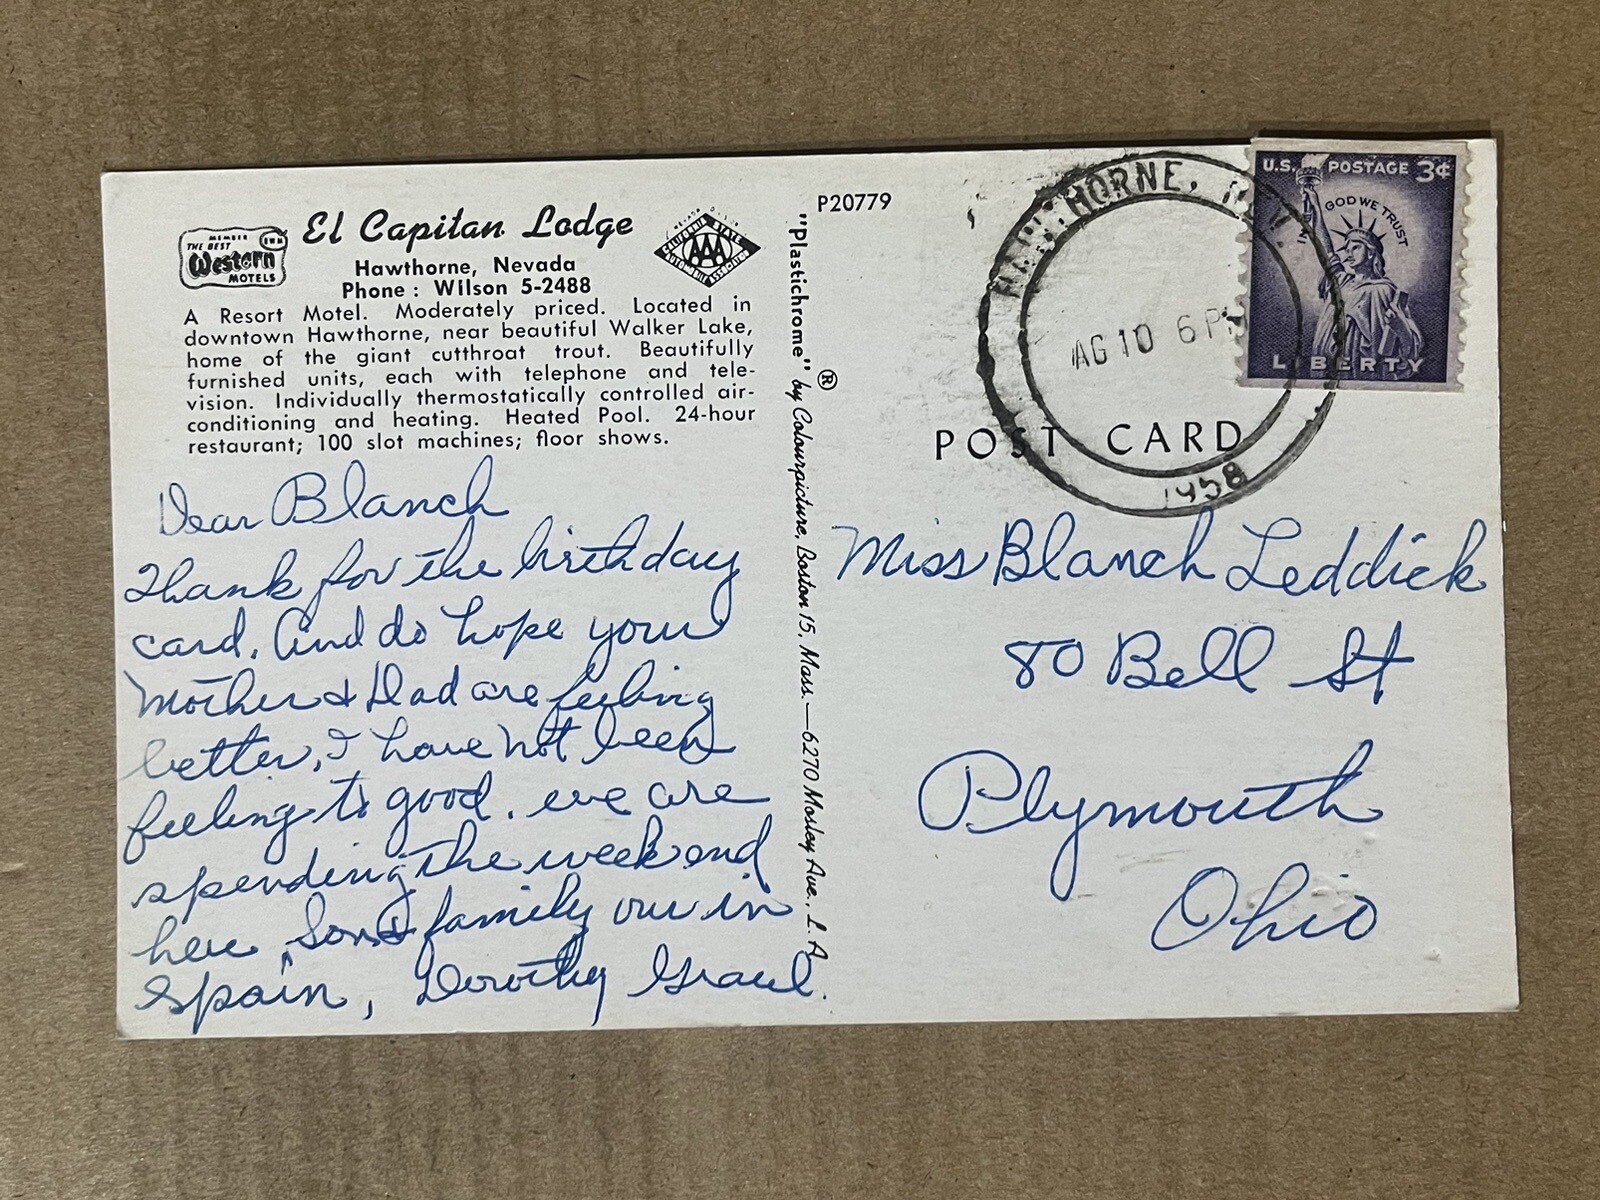 MEMBER
THE BEST
Western
MOTELS
BWM
El Capitan Lodge
CALIFORNIA STATE
AAA
AUTOMOBILE ASSOCIATION
Hawthorne, Nevada
Phone : Wilson 5-2488
A Resort Motel. Moderately priced. Located in
downtown Hawthorne, near beautiful Walker Lake,
home of the giant cutthroat trout. Beautifully
furnished units, each with telephone and tele-
vision. Individually thermostatically controlled air-
conditioning and heating. Heated Pool. 24-hour
restaurant; 100 slot machines; floor shows.
Dear Blanch
Thank for the birthday
card. And do hope your
Mother & Dad are feeling
better, I have not been
feeling to good. we are
spending the weekend
here, Son & family our in
Spain, Dorothy Graul.
P20779
"Plastichrome" ® by Colourpicture, Boston 15, Mass. — 6270 Mosley Ave., L. A
HAWTHORNE, NEV.
AG 10 6 PM
1958
U.S. POSTAGE 3¢
IN GOD WE TRUST
LIBERTY
POST CARD
Miss Blanch Leddick
80 Bell St
Plymouth
Ohio